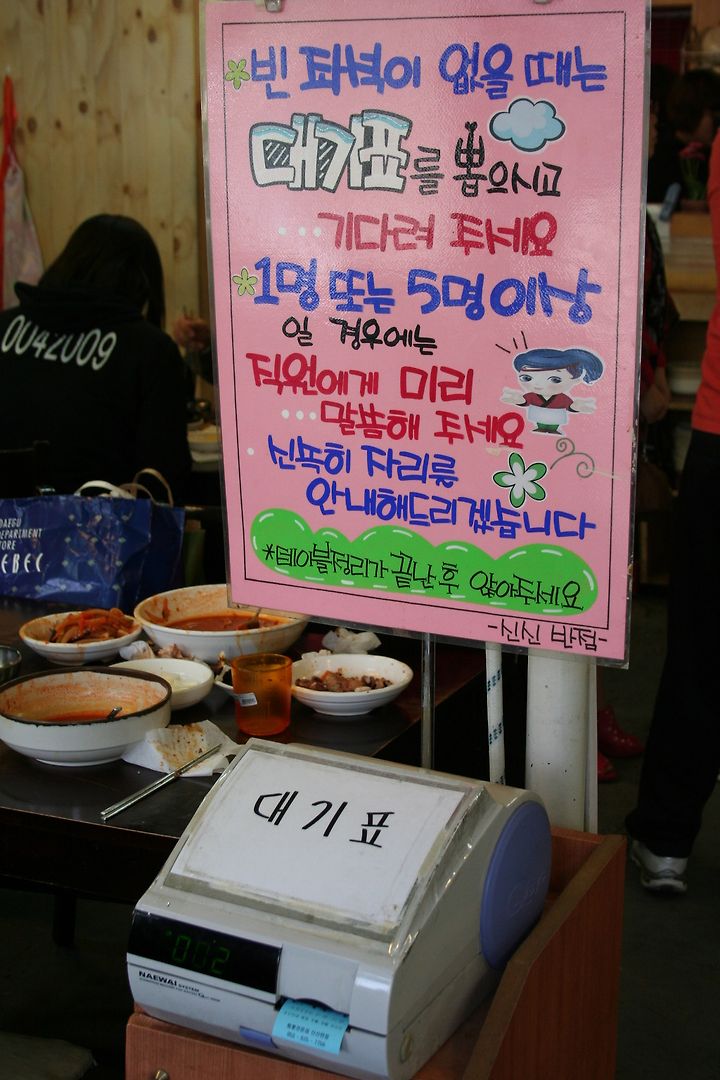 *빈 좌석이 없을 때는
대기표를 뽑으시고
...기다려 주세요
1명 또는 5명이상
일 경우에는
직원에게 미리
...말씀해 주세요
신속히 자리를
안내해드리겠습니다
*테이블정리가 끝난후 앉아주세요
-신신 반점-
0042009
DAEGU
DEPARTMENT
STORE
DEBEC
대기표
072
NAEWAI SYSTEM